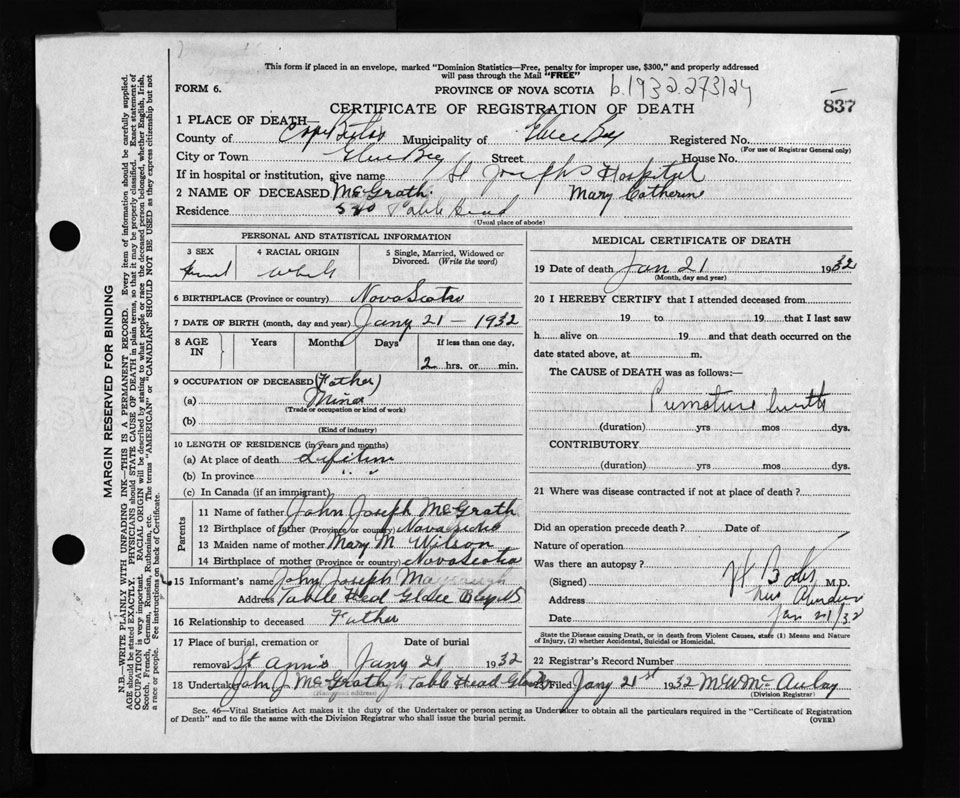 This form if placed in an envelope, marked "Dominion Statistics—Free, penalty for improper use, $300," and properly addressed
will pass through the Mail "FREE"
FORM 6.
PROVINCE OF NOVA SCOTIA b.1932.273124
CERTIFICATE OF REGISTRATION OF DEATH
837
1 PLACE OF DEATH
County of Cape Breton Municipality of Glace Bay Registered No.
(For use of Registrar General only)
City or Town Glace Bay Street House No.
If in hospital or institution, give name St Joseph's Hospital
2 NAME OF DECEASED McGrath. Mary Catherine
Residence Table Head
(Usual place of abode)
PERSONAL AND STATISTICAL INFORMATION
3 SEX 4 RACIAL ORIGIN 5 Single, Married, Widowed or Divorced. (Write the word)
Female White
6 BIRTHPLACE (Province or country) Nova Scotia
7 DATE OF BIRTH (month, day and year) Jany 21 - 1932
8 AGE IN Years Months Days If less than one day,
2 hrs. or min.
9 OCCUPATION OF DECEASED (Father)
(a) Miner
(Trade or occupation or kind of work)
(b)
(Kind of industry)
10 LENGTH OF RESIDENCE (in years and months)
(a) At place of death Lifetime
(b) In province " "
(c) In Canada (if an immigrant)
Parents
11 Name of father John Joseph McGrath
12 Birthplace of father (Province or country) Nova Scotia
13 Maiden name of mother Mary M Wilson
14 Birthplace of mother (Province or country) Nova Scotia
15 Informant's name John Joseph
Address Table Head Glace Bay NS
16 Relationship to deceased Father
17 Place of burial, cremation or removal St Ann's Date of burial Jany 21 1932
18 Undertaker John J McGrath Table Head Glace Bay
MEDICAL CERTIFICATE OF DEATH
19 Date of death Jan 21 1932
(Month, day and year)
20 I HEREBY CERTIFY that I attended deceased from
19 to 19 that I last saw
h alive on 19 and that death occurred on the
date stated above, at m.
The CAUSE of DEATH was as follows:—
Premature birth
(duration) yrs mos dys.
CONTRIBUTORY
(duration) yrs mos dys.
21 Where was disease contracted if not at place of death?
Did an operation precede death? Date of
Nature of operation
Was there an autopsy?
(Signed) M.D.
Address New Aberdeen
Date Jan 21/32
State the Disease causing Death, or in death from Violent Causes, state (1) Means and Nature
of Injury, (2) whether Accidental, Suicidal or Homicidal.
22 Registrar's Record Number
Filed Jany 21st 1932 McAulay
(Division Registrar)
Sec. 46—Vital Statistics Act makes it the duty of the Undertaker or person acting as Undertaker to obtain all the particulars required in the "Certificate of Registration
of Death" and to file the same with the Division Registrar who shall issue the burial permit. (OVER)
MARGIN RESERVED FOR BINDING
N.B.—WRITE PLAINLY WITH UNFADING INK—THIS IS A PERMANENT RECORD. Every item of information should be carefully supplied.
AGE should be stated EXACTLY. PHYSICIANS should STATE CAUSE OF DEATH in plain terms, so that it may be properly classified. Exact statement of
OCCUPATION is very important. RACIAL ORIGIN will be described by stating to what people or race the deceased person belonged, whether English, Irish,
Scotch, French, German, Russian, Ruthenian, etc. The terms "AMERICAN" or "CANADIAN" SHOULD NOT BE USED as they express citizenship but not
a race or people. Fee instructions on back of Certificate.